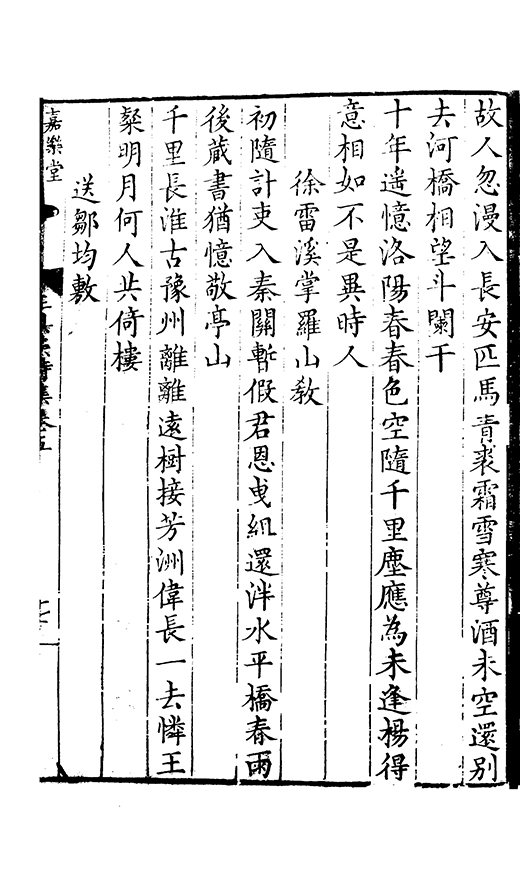 故人忽漫入長安匹馬青裘霜雪寒尊酒未空還别
去河橋相望斗闌干
十年遥憶洛陽春春色空隨千里塵應為未逢楊得
意相如不是異時人
徐雷溪掌羅山敎
初隨計吏入秦關暫假君恩曵組還泮水平橋春雨
後藏書猶憶敬亭山
千里長淮古豫州離離遠樹接芳洲偉長一去憐王
粲明月何人共倚樓
送鄒均敷
嘉樂堂
集卷五